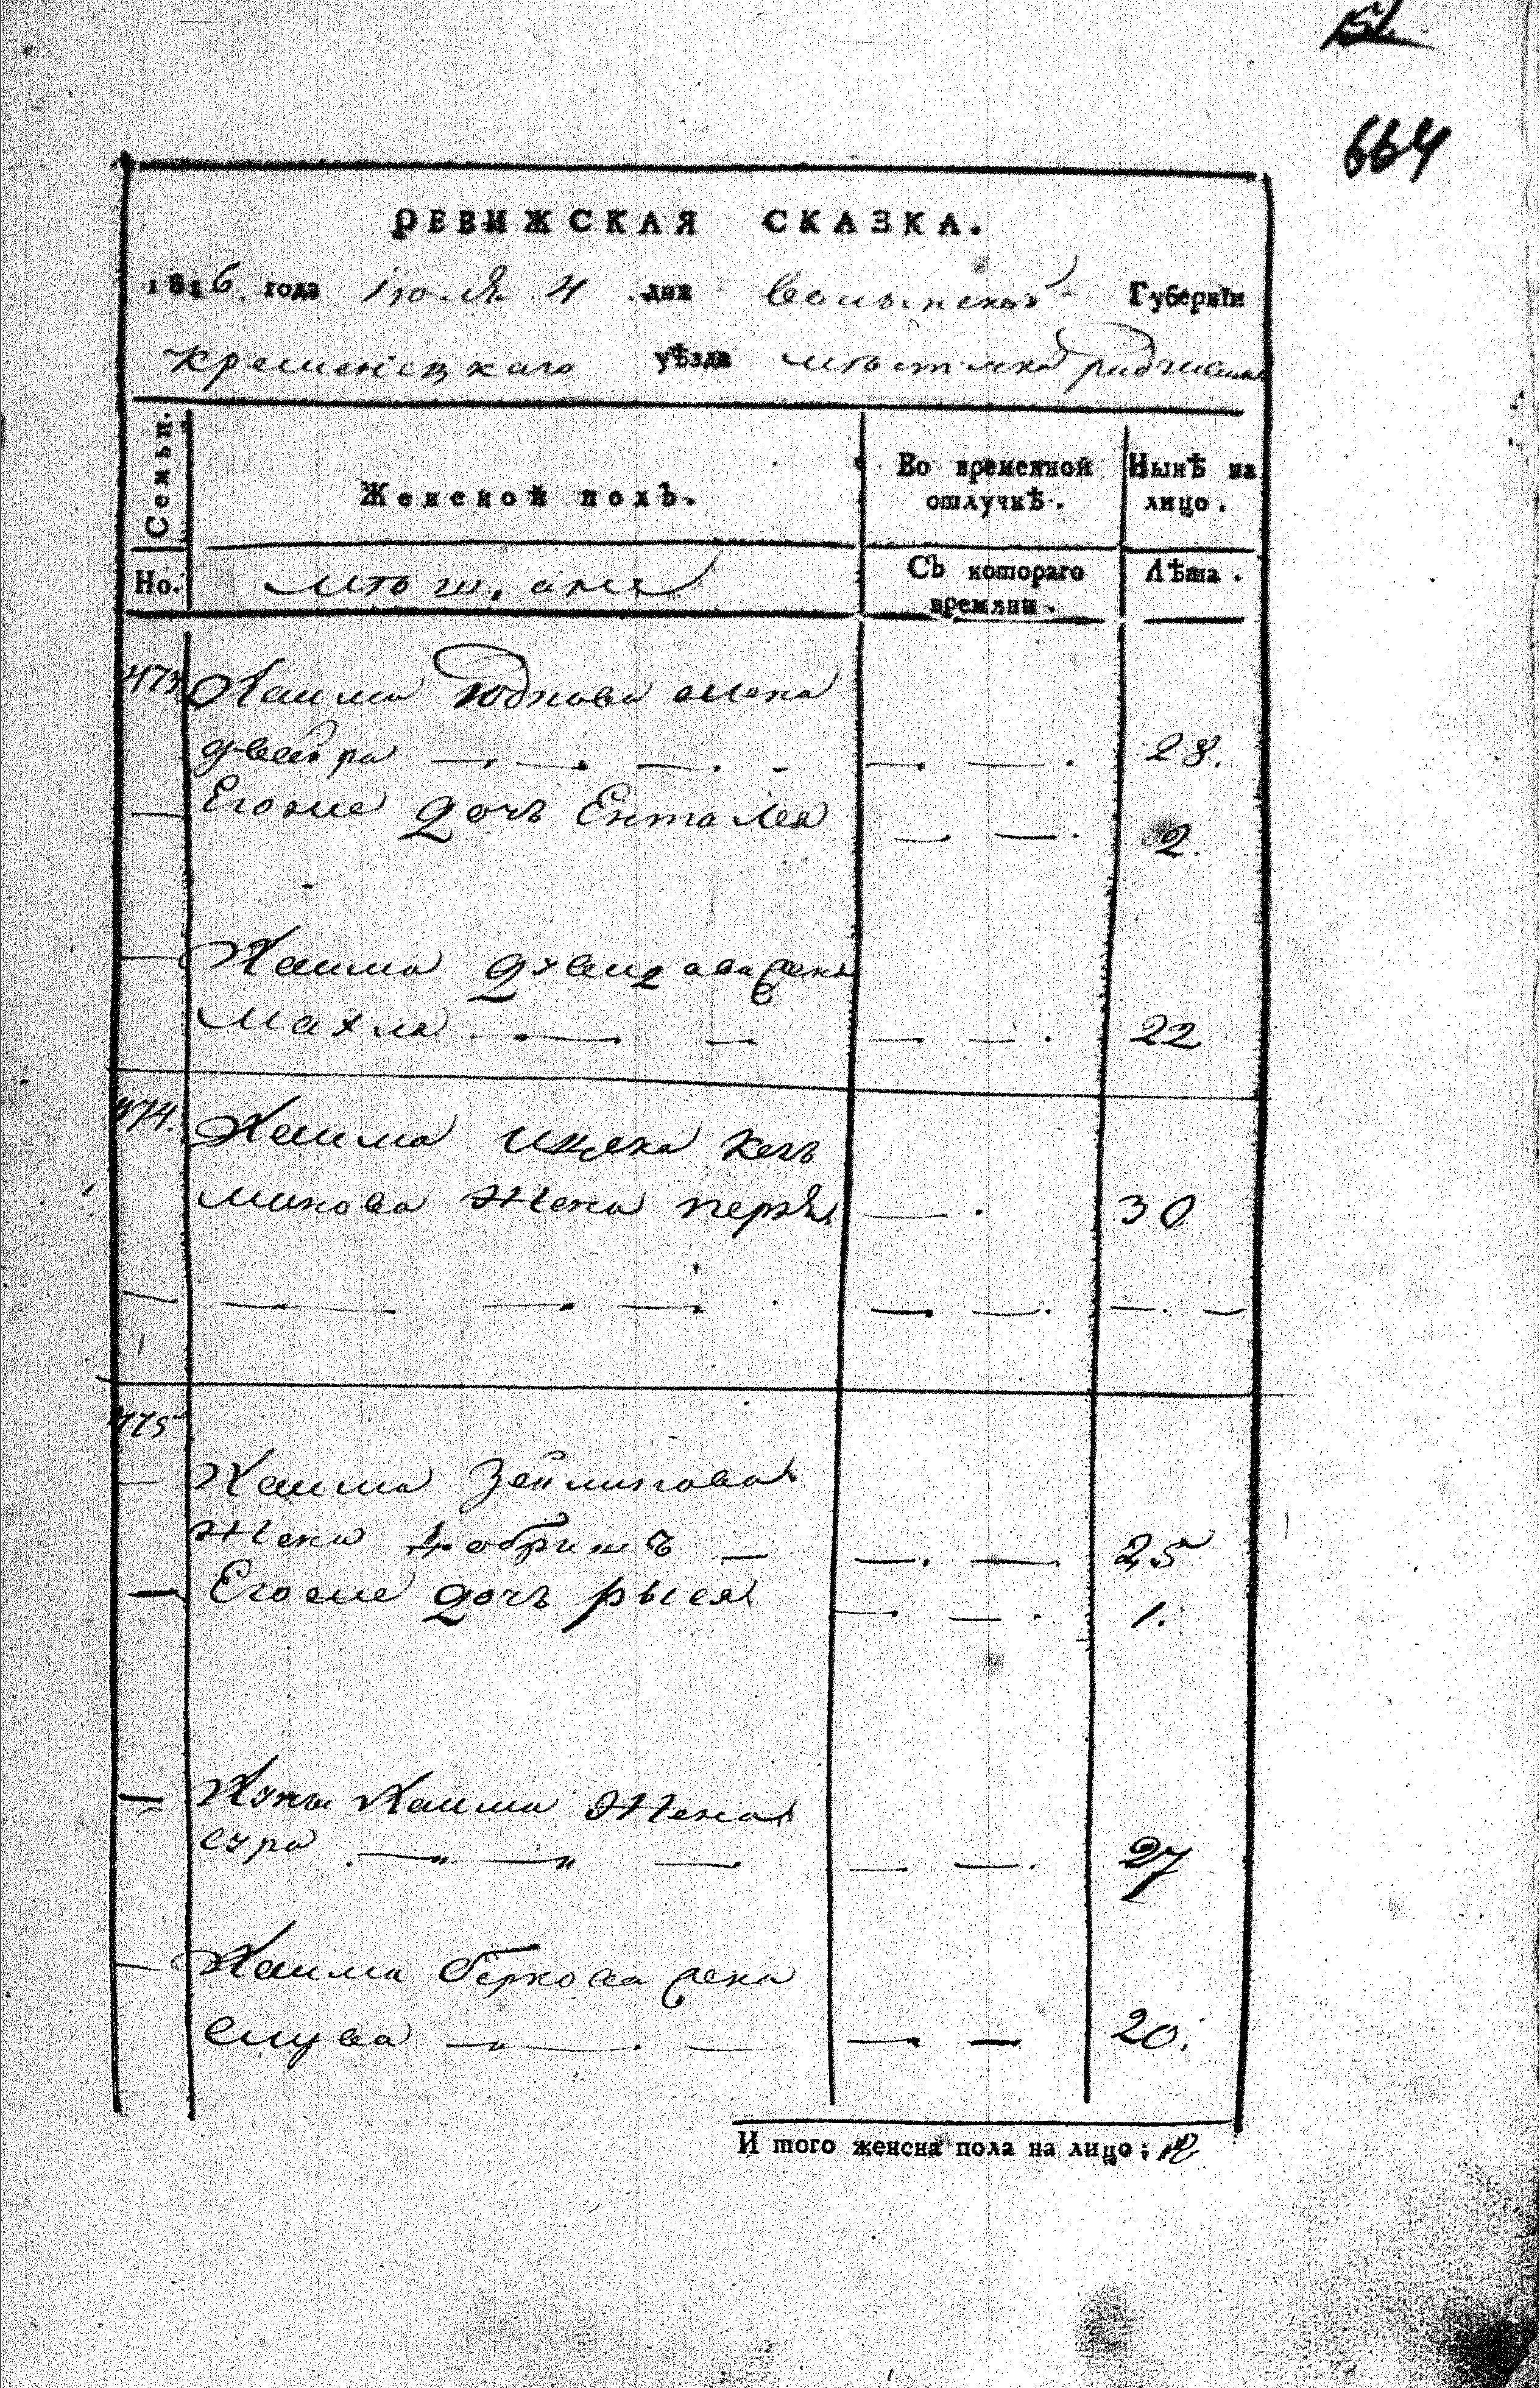 151.
664
РЕВИЖСКАЯ СКАЗКА.
1816 года Июля 4 дня Волынской Губернїи
Кременецкаго уѣзда мѣстечка
Семьи.
Женской полъ.
Во временной отлучкѣ.
Нынѣ на лицо.
Но.
мѣщане
Съ котораго времяни.
Лѣта.
473 Хаима Юдкова жена
двейра 28.
Егоже дочь Ента Лея 2.
Хаима Дувидова жена
Махля 22
474. Хаима Ицека Кель
манова жена перля 30
475
Хаима Зейлигова
жена добришъ 25
Егоже дочь рыся 1.
Хуны Хаима жена
сура 27
Хаима Беркова жена
слува 20.
И того женска пола на лицо: